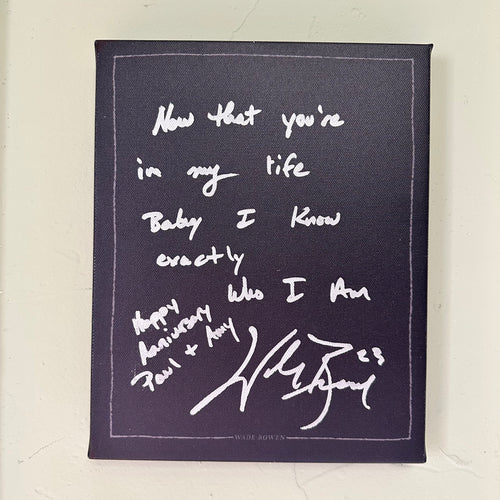 Now that you're
in my life
Baby I Know
exactly
Who I Am
Happy
Anniversary
Paul + Amy
Wade Bowen 23
WADE BOWEN